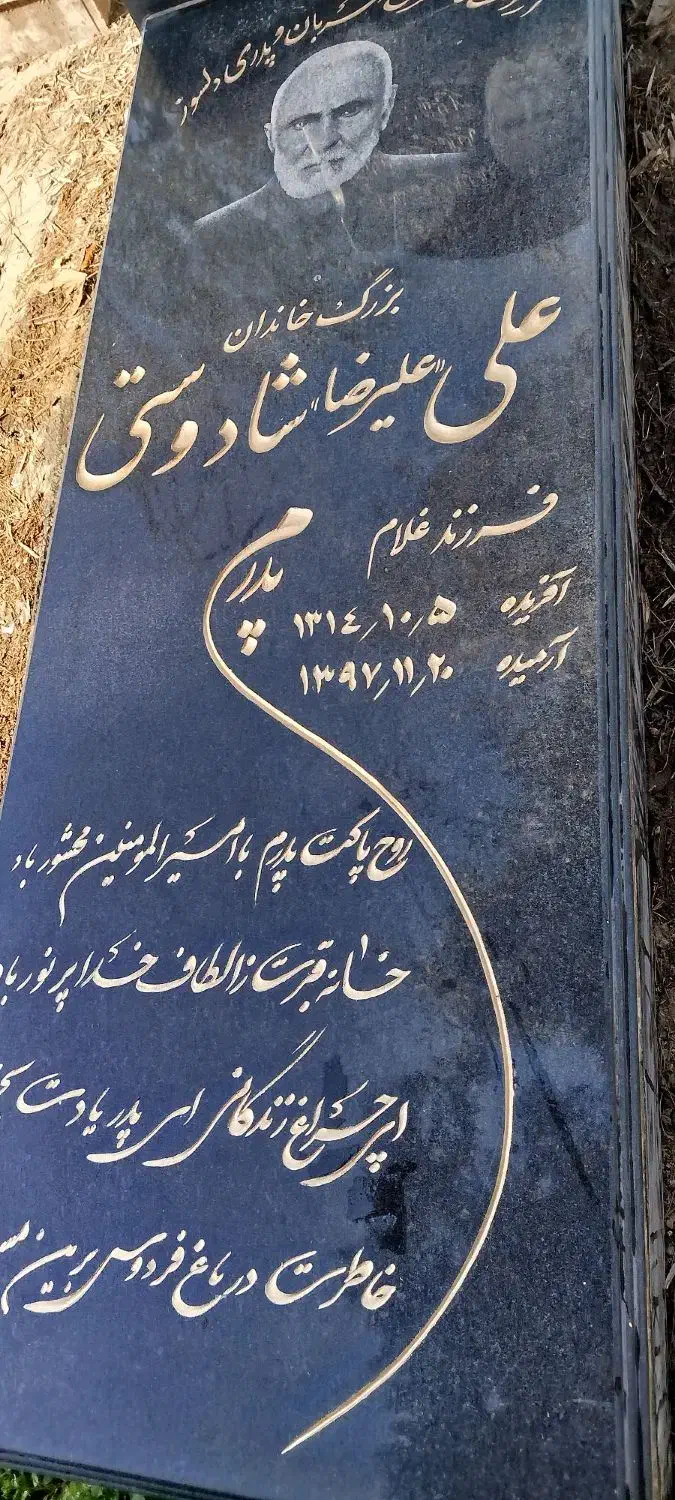 مهربان و پدری دلسوز
بزرگ خاندان
علی «علیرضا» شاددوستی
فرزند غلام
پدرم
آفریده ۱۳۱٤٫۱۰٫۵
آرمیده ۱۳۹۷٫۱۱٫۲۰
روح پاکت پدرم با امیرالمومنین محشور باد
خانه قبرت ز الطاف خدا پر نور باد
ای چراغ زندگانی ای پدر یادت
خاطرت در باغ فردوس برین